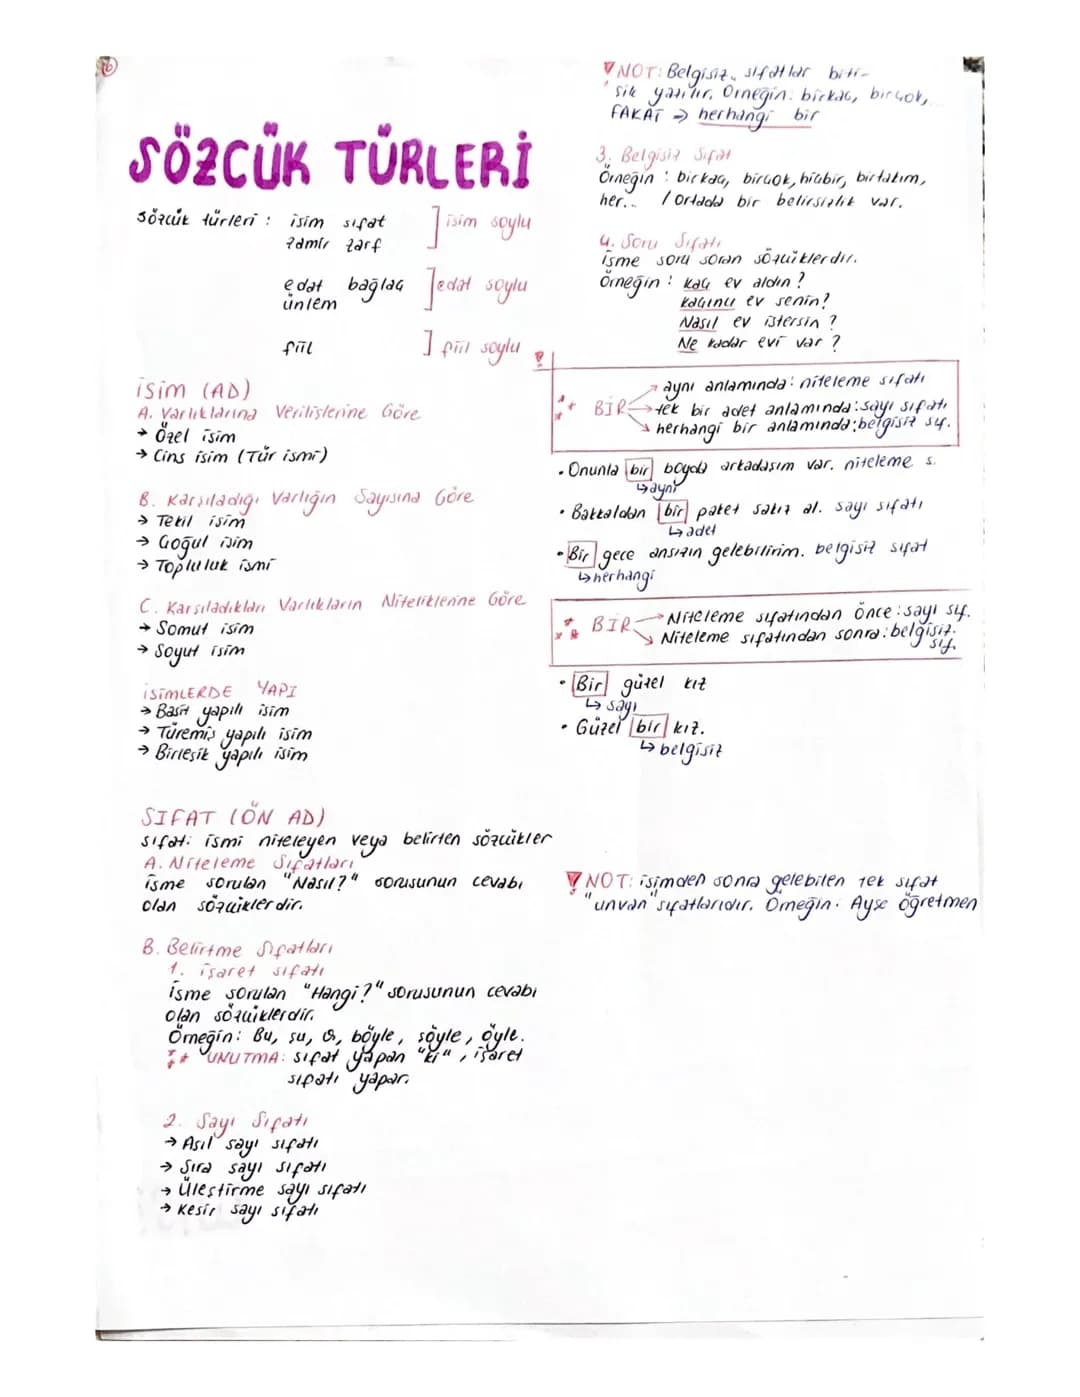 6
SÖZCÜK TÜRLERİ
Sözcük türleri : isim sıfat ] isim soylu
zamir zarf
edat bağlaç ] edat soylu
ünlem
fiil ] fiil soylu
İSİM (AD)
A. Varlıklarına Verilişlerine Göre
→ Özel isim
→ Cins isim (Tür ismi)
B. Karşıladığı Varlığın Sayısına Göre
→ Tekil isim
→ Çoğul isim
→ Topluluk ismi
C. Karşıladıkları Varlıkların Niteliklerine Göre
→ Somut isim
→ Soyut isim
İSİMLERDE YAPI
→ Basit yapılı isim
→ Türemiş yapılı isim
→ Birleşik yapılı isim
SIFAT (ÖN AD)
Sıfat: ismi niteleyen veya belirten sözcükler
A. Niteleme Sıfatları
isme sorulan "Nasıl?" sorusunun cevabı
olan sözcüklerdir.
B. Belirtme Sıfatları
1. işaret sıfatı
isme sorulan "Hangi?" sorusunun cevabı
olan sözcüklerdir.
Örneğin: Bu, şu, o, böyle, şöyle, öyle.
** UNUTMA: Sıfat yapan "ki", işaret
sıfatı yapar.
2. Sayı Sıfatı
→ Asıl sayı sıfatı
→ Sıra sayı sıfatı
→ Üleştirme sayı sıfatı
→ Kesir sayı sıfatı
NOT: Belgisiz sıfatlar biti-
şik yazılır. Örneğin: birkaç, birçok, ...
FAKAT → herhangi bir
3. Belgisiz Sıfat
Örneğin : birkaç, birçok, hiçbir, birtakım,
her... / Ortada bir belirsizlik var.
4. Soru Sıfatı
isme soru soran sözcüklerdir.
Örneğin : Kaç ev aldın?
Kaçıncı ev senin?
Nasıl ev istersin ?
Ne kadar evi var ?
→ aynı anlamında: niteleme sıfatı
** BİR → tek bir adet anlamında: sayı sıfatı
→ herhangi bir anlamında: belgisiz sıf.
• Onunla bir boyda arkadaşım var. niteleme s.
↳ aynı
• Bakkaldan bir paket sakız al. sayı sıfatı
↳ adet
• Bir gece ansızın gelebilirim. belgisiz sıfat
↳ herhangi
** BİR → Niteleme sıfatından önce : sayı sıf.
→ Niteleme sıfatından sonra : belgisiz
sıf.
• Bir güzel kız
↳ sayı
• Güzel bir kız.
↳ belgisiz
NOT: isimden sonra gelebilen tek sıfat
"unvan" sıfatlarıdır. Örneğin: Ayşe öğretmen